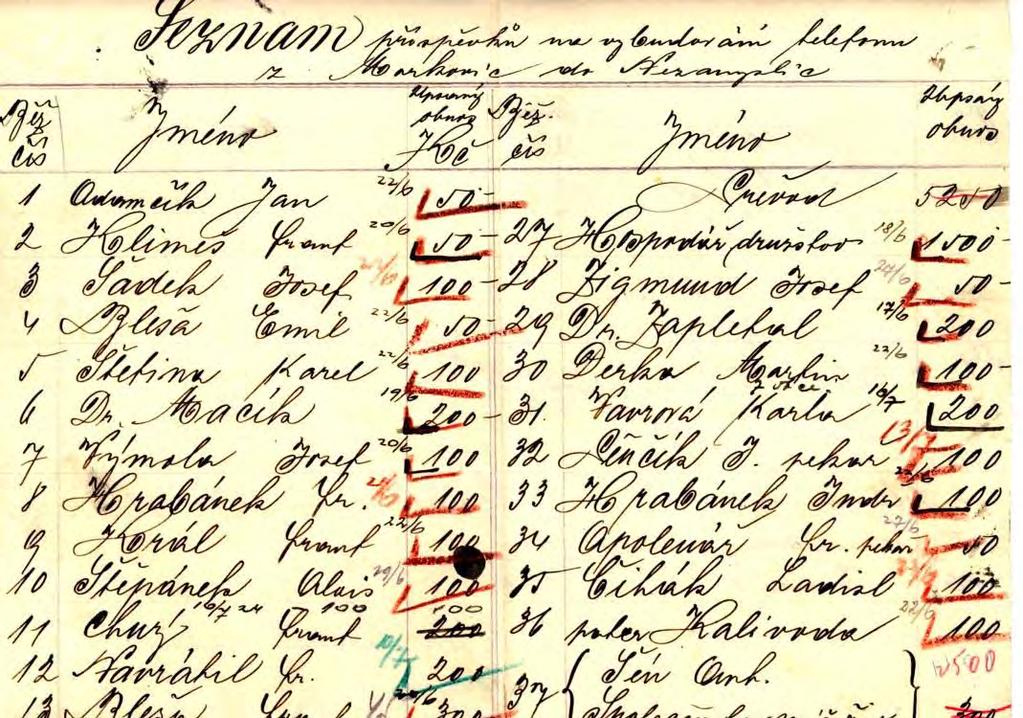 Seznam příspěvků na vybudování telefonu
z Morkovic do Nezamyslic
Běž. čís Jméno Upsaný obnos Kč
1 Adamčík Jan 22/6 50-
2 Klimeš Frant 20/6 50-
3 Sádek Josef 100-
4 Bleša Emil 22/6 50-
5 Štětina Karel 22/6 100
6 Dr. Macík 19/6 200-
7 Výmola Josef 20/6 100
8 Hrabánek Fr. 100
9 Král Frant 22/6 100
10 Štěpánek Alois 29/6 100
11 Chudý Frant 100 200
12 Navrátil Fr. 200
13 Bleša 20/6 300
Běž. čís Jméno Upsaný obnos
Převod 5250
27 Hospodář. družstvo 18/6 1500-
28 Zigmund Josef 24/6 50-
29 Dr. Zapletal 17/6 200
30 Derka Martin 22/6 100-
31. Vavrová Karla 200
32 Lénčík J. pekař 13/7 100
33 Hrabánek Jindr 22/6 100
34 Apolenář Fr. pekař 27/6 50
35 Čihák Ladisl 100
36 pater Kalivoda 22/6 100
500
37 Šén Ant.